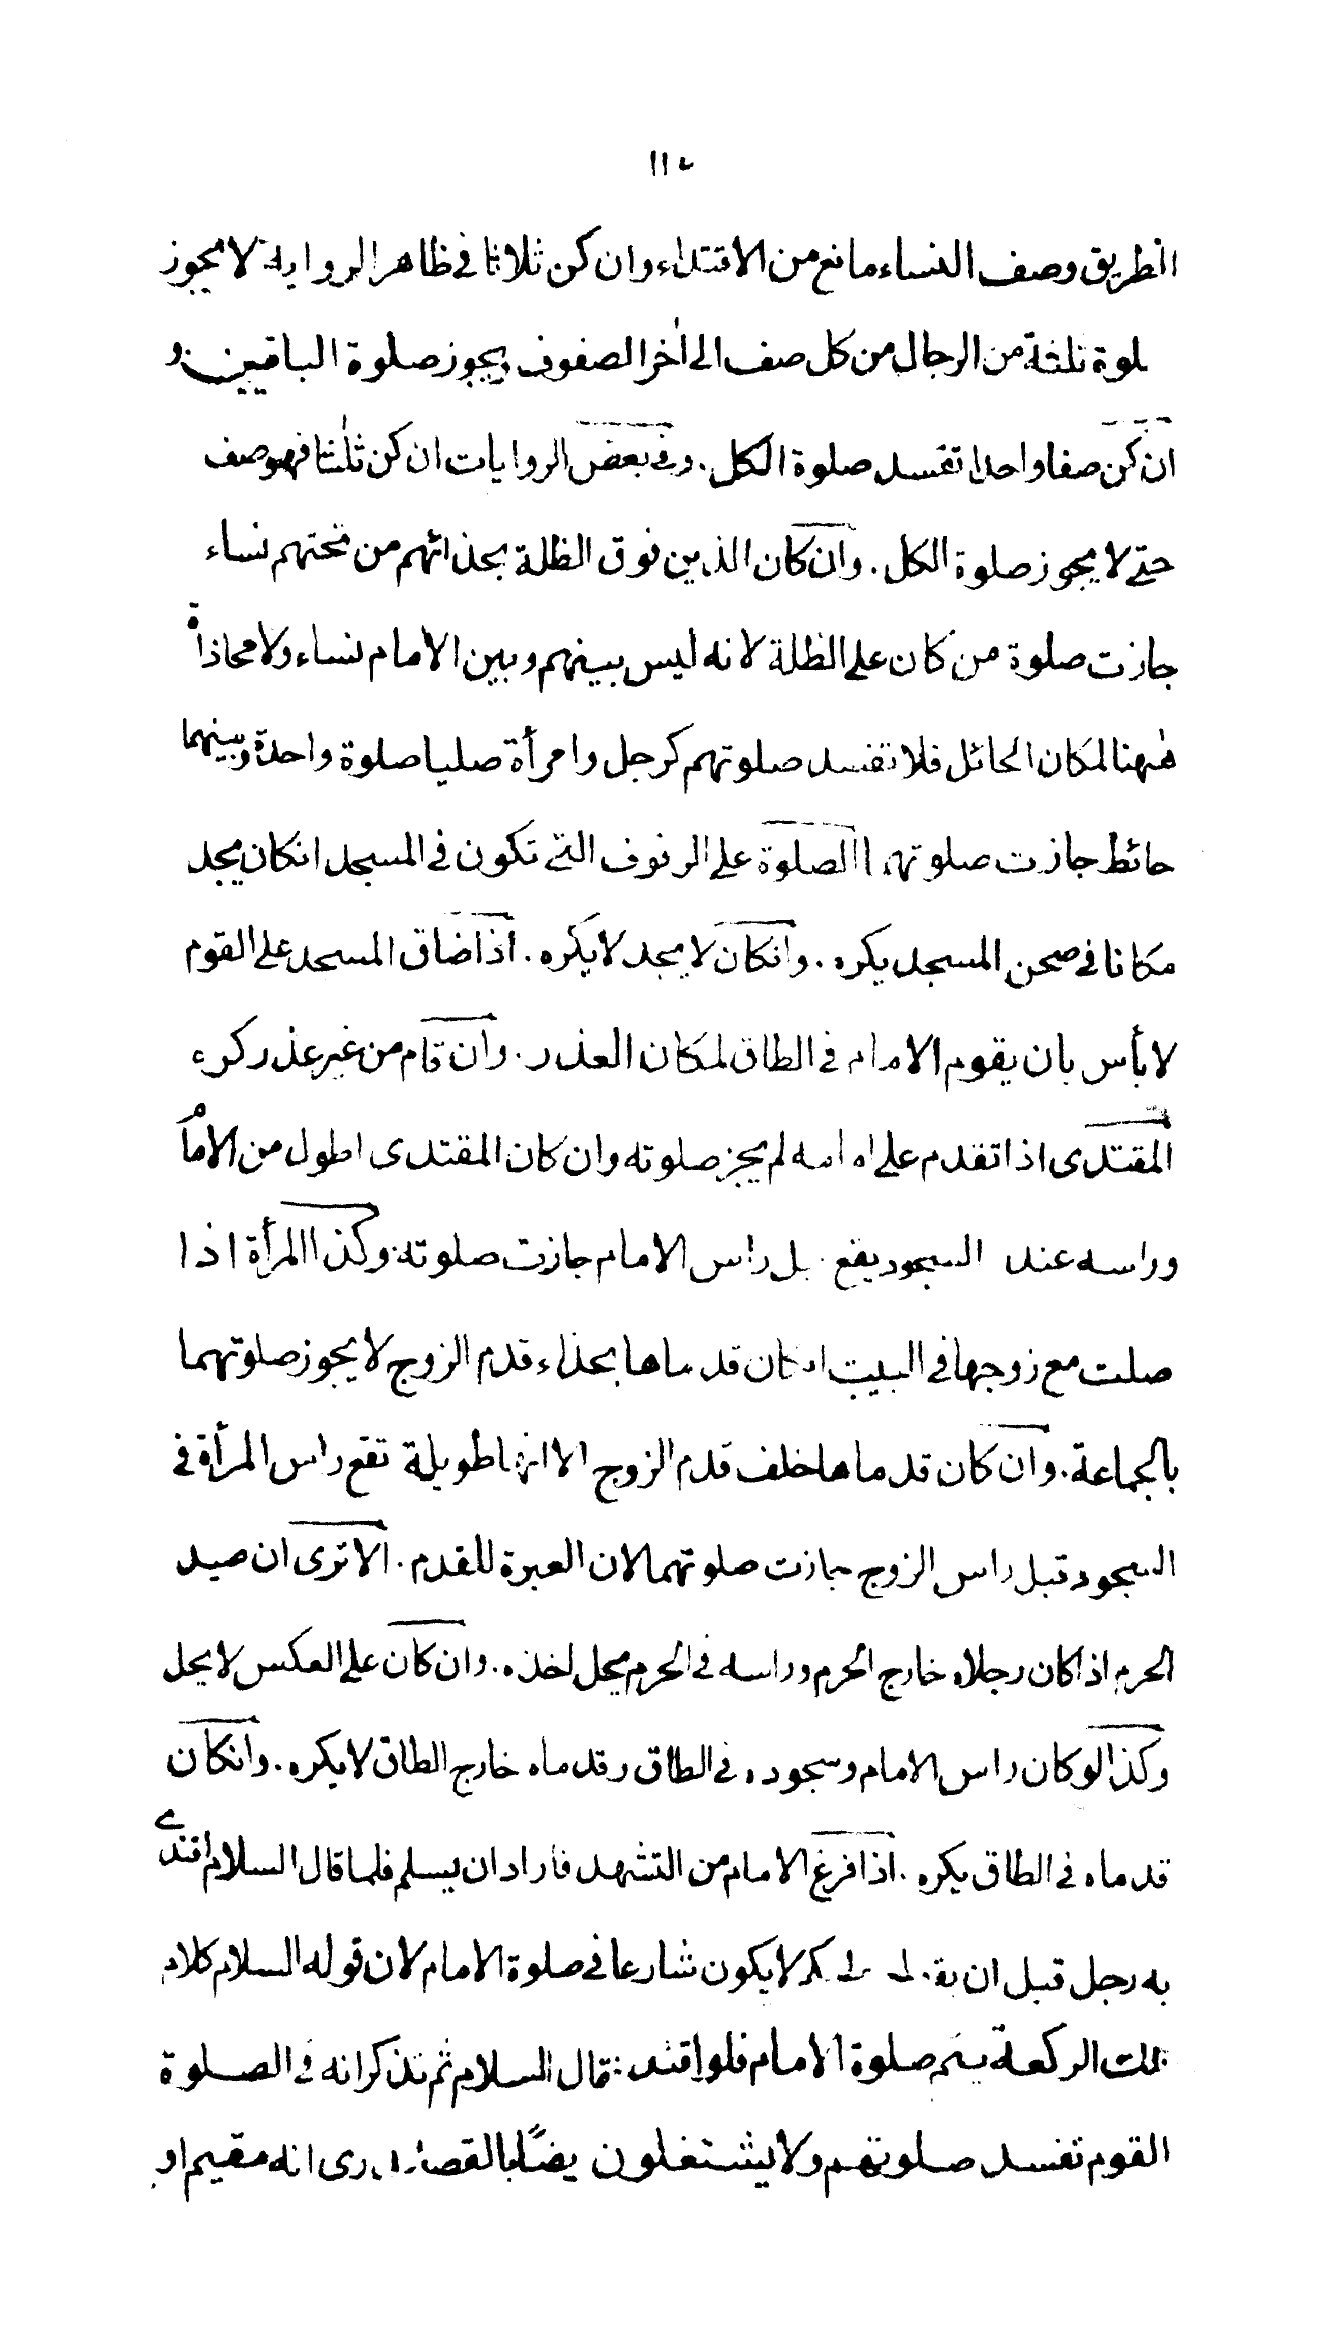 الطريق وصف النساء مانع من الاقتداء وان كن ثلاثا في ظاهر الرواية لا يجوز
صلوة ثلثة من الرجال من كل صف الى اٰخر الصفوف ويجوز صلوة الباقين و
ان كن صفا واحدا تفسد صلوة الكل . وفي بعض الروايات ان كن ثلٰثا فهو صف
حتے لا يجوز صلوة الكل . وان كان الذين فوق الظلة بحذائهم من تحتهم نساء
جازت صلوة من كان على الظلة لانه ليس بينهم وبين الامام نساء ولا محاذاة
هٰهنا لمكان الحائل فلا تفسد صلوتهم كرجل وامرأة صليا صلوة واحدة وبينهما
حائط جازت صلوتهما الصلوة على الرفوف التي تكون في المسجد انكان يجد
مكانا في صحن المسجد يكره . وانكان لا يجد لا يكره . اذا ضاق المسجد على القوم
لا بأس بان يقوم الامام في الطاق لمكان العذر . وان قام من غير عذر كره
المقتدى اذا تقدم على امامه لم يجز صلوته وان كان المقتدى اطول من الامام
وراسه عند السجود يقع راس الامام جازت صلوته وكذا المرأة اذا
صلت مع زوجها في البيت ان كان قدماها بحذاء قدم الزوج لا يجوز صلوتهما
بالجماعة . وان كان قدماها خلف قدم الزوج الا انها طويلة تقع راس المرأة في
السجود قبل راس الزوج جازت صلوتهما لان العبرة للقدم . الا ترى ان صيد
الحرم اذا كان رجلاه خارج الحرم وراسه في الحرم يحل اخذه . وان كان على العكس لا يحل
وكذا لو كان راس الامام وسجوده في الطاق وقدماه خارج الطاق لا يكره . وانكان
قدماه في الطاق يكره . اذا فرغ الامام من التشهد فاراد ان يسلم فلما قال السلام اقتدے
به رجل قبل ان يقول عليكم لا يكون شارعا في صلوة الامام لان قوله السلام كلام
الركعة يتم صلوة الامام فلو قال السلام ثم تذكر انه في الصلوة
القوم تفسد صلوتهم ولا يشتغلون ايضًا بالقضاء انه مقيم او